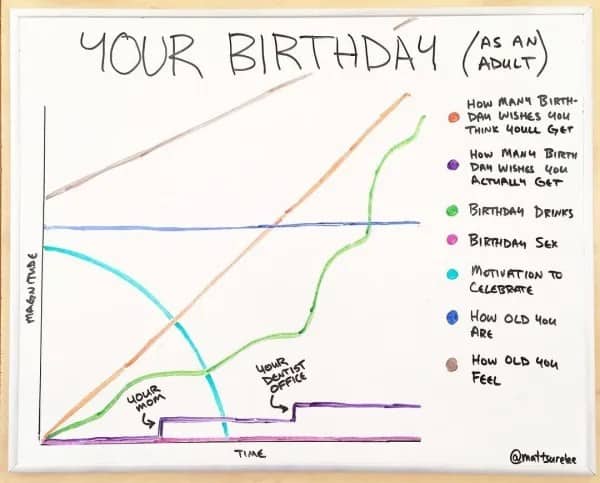 YOUR BIRTHDAY (AS AN ADULT)
HOW MANY BIRTH-
DAY WISHES YOU
THINK YOULL GET
HOW MANY BIRTH
DAY WISHES YOU
ACTUALLY GET
BIRTHDAY DRINKS
BIRTHDAY SEX
MOTIVATION TO
CELEBRATE
HOW OLD YOU
ARE
HOW OLD YOU
FEEL
MAGNITUDE
YOUR
MOM
YOUR
DENTIST
OFFICE
TIME
@mattsurelee